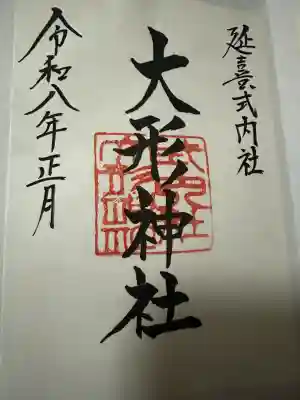 延喜式内社
大形神社
令和八年正月